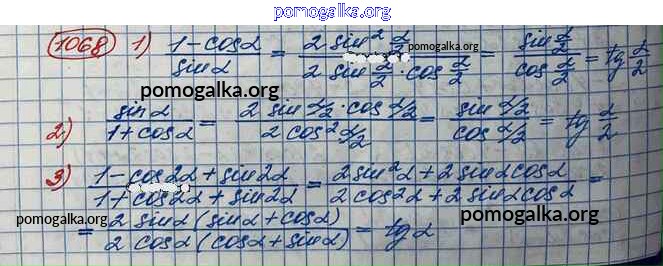 pomogalka.org
1068 1) (1-cosα)/(sinα) = (2 sin² α/2)/(2 sin α/2 · cos α/2) = (sin α/2)/(cos α/2) = tg α/2
pomogalka.org
pomogalka.org
2) (sinα)/(1+cosα) = (2 sin α/2 · cos α/2)/(2 cos² α/2) = (sin α/2)/(cos α/2) = tg α/2
3) (1-cos2α+sin2α)/(1+cos2α+sin2α) = (2sin²α+2sinαcosα)/(2cos2α+2sinαcosα) =
pomogalka.org
pomogalka.org
= (2 sinα(sinα+cosα))/(2 cosα(cosα+sinα)) = tgα